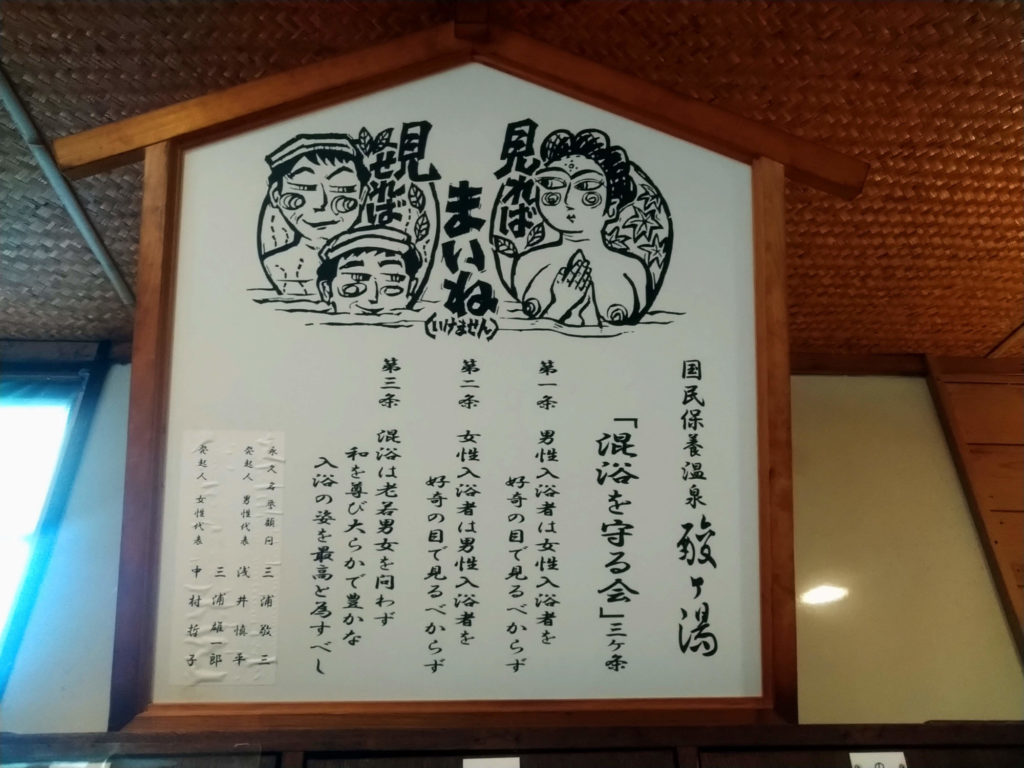 見れば
まいね
(いけません)
見せれば
国民保養温泉 酸ヶ湯
「混浴を守る会」三ヶ条
第一条 男性入浴者は女性入浴者を
好奇の目で見るべからず
第二条 女性入浴者は男性入浴者を
好奇の目で見るべからず
第三条 混浴は老若男女を問わず
和を尊び大らかで豊かな
入浴の姿を最高と為すべし
永久名誉顧問 三浦敬三
発起人 男性代表 浅井慎平
三浦雄一郎
発起人 女性代表 中村哲子